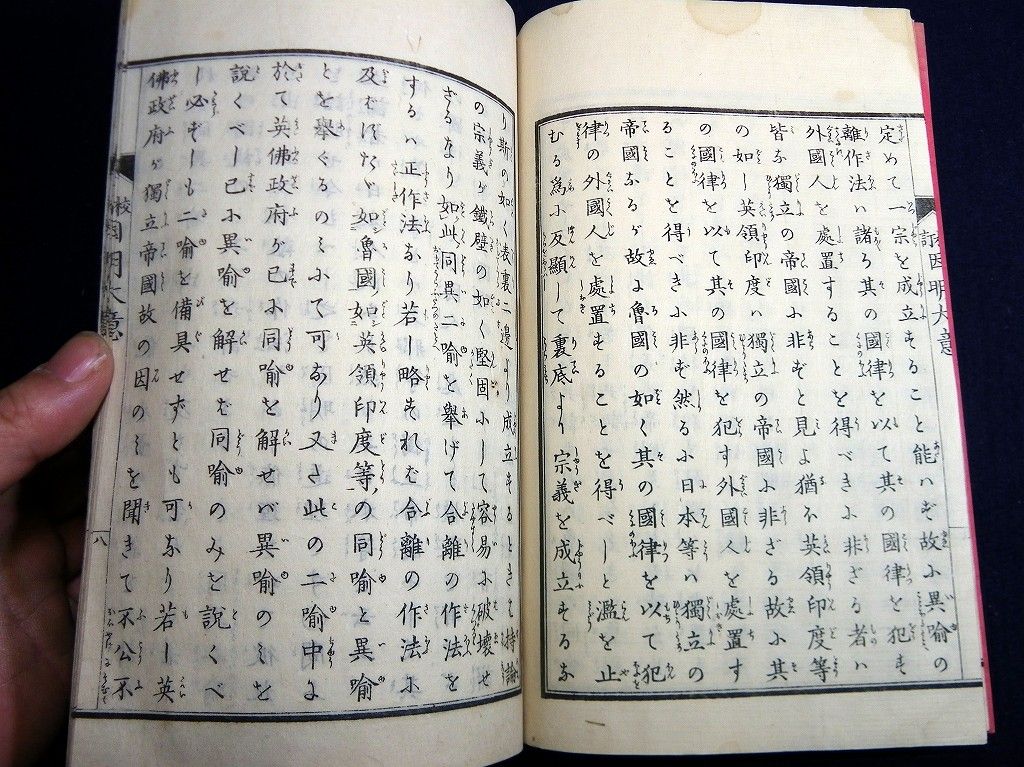 定めて一宗を成立すること能ハず故に異喩の
離作法ハ諸ろ其の國律を以て其の國律を犯す
外國人を處置することを得べきに非ざる者ハ
皆な獨立の帝國に非ずと見よ猶ホ英領印度等
の如し英領印度ハ獨立の帝國に非ざる故に其
の國律を以て其の國律を犯す外國人を處置す
ることを得べきに非ず然るに日本等ハ獨立の
帝國なるが故に魯國の如く其の國律を以て犯
律の外國人を處置することを得べしと濫を止
むる爲に反顯して裏底より宗義を成立するな
り斯の如く表裏二邊より成立するときハ持論
の宗義ガ鐵壁の如く堅固にして容易に破壊せ
ざるなり如此同異二喩を舉げて合離の作法を
するハ正作法なり若し略すれバ合離の作法に
及バずたゞ如魯國如英領印度等の同喩と異喩
とを舉ぐるのミにて可なり又さ此の二喩中に
於て英佛政府ガ已に同喩を解せバ異喩のミを
說くべし已に異喩を解せバ同喩のみを說くべ
し必ずしも二喩を備具せずとも可なり若し英
佛政府ガ獨立帝國故の因のミを聞きて不公不
因明大意
因明大意
八